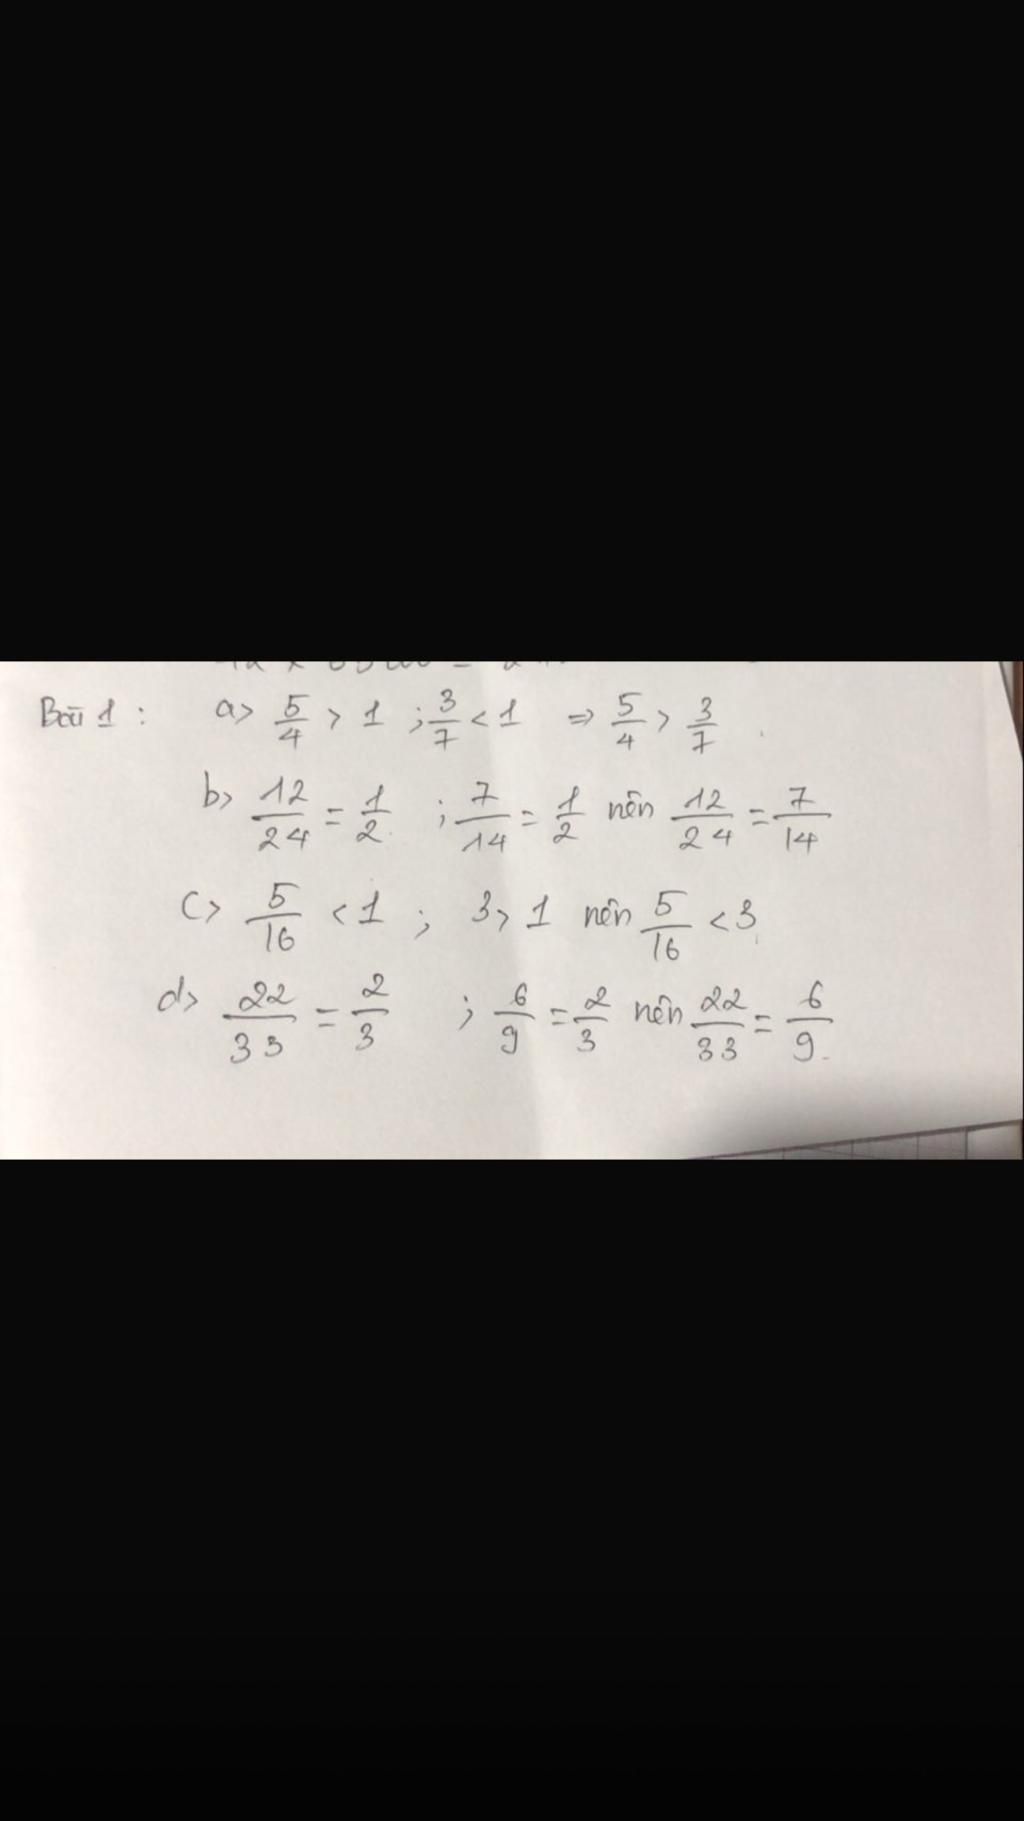 Bài 1 : a> 5/4 > 1 ; 3/7 < 1 => 5/4 > 3/7 .
b> 12/24 = 1/2 ; 7/14 = 1/2 nên 12/24 = 7/14
c> 5/16 < 1 ; 3 > 1 nên 5/16 < 3
d> 22/33 = 2/3 ; 6/9 = 2/3 nên 22/33 = 6/9